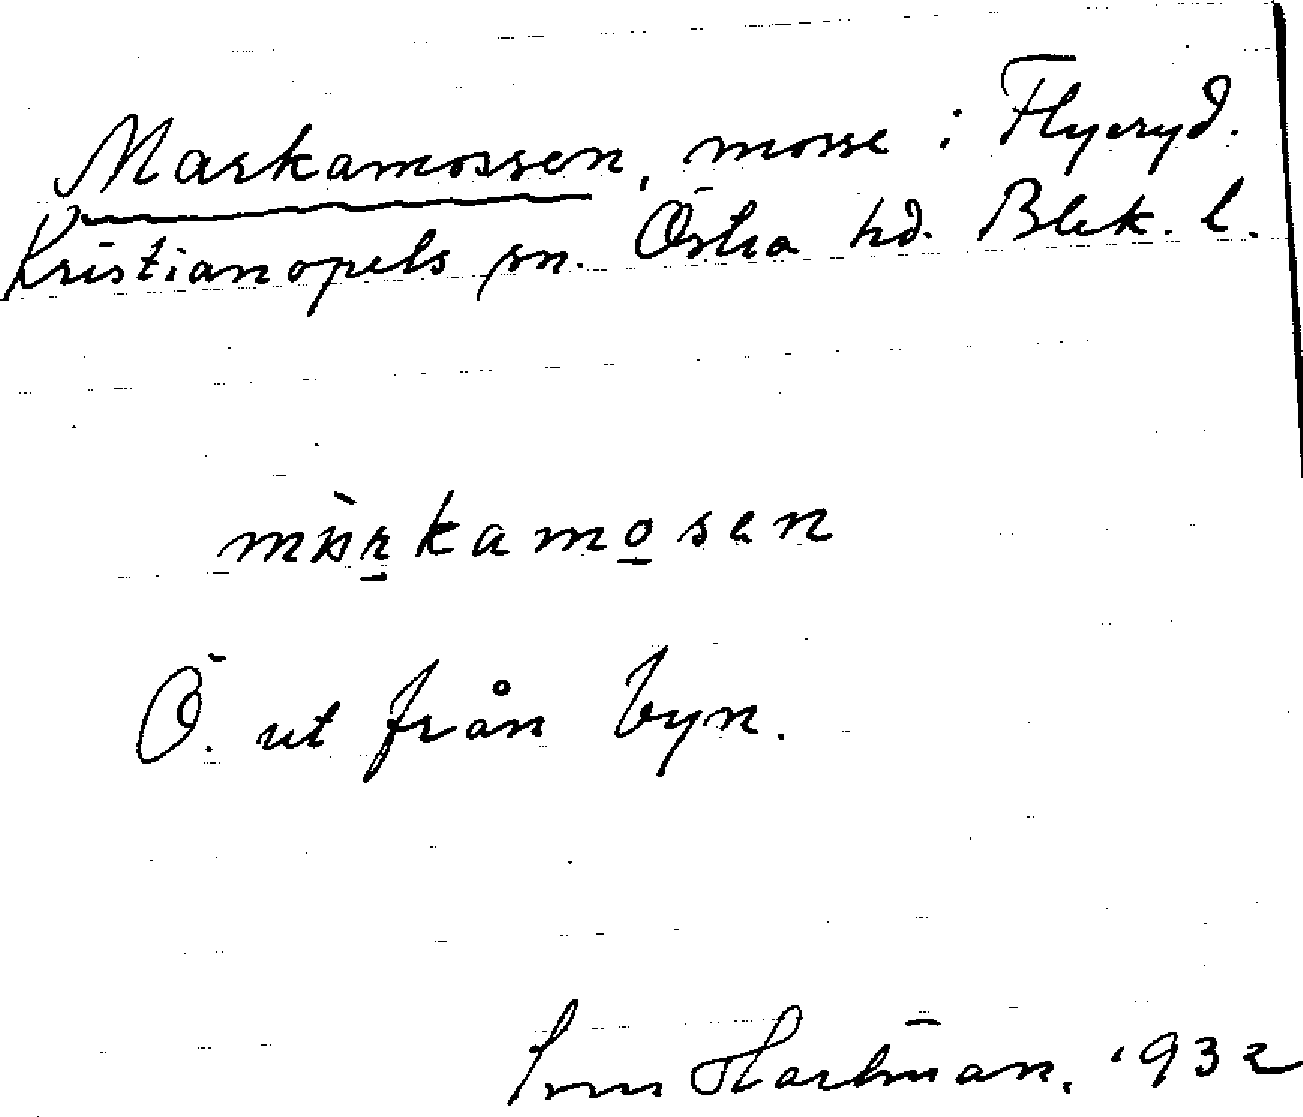 Markamossen, mosse i Flyeryd.
Kristianopels sn. Östra hd. Blek. l.
markamosen
Ö. ut från byn.
Hartman. 1932